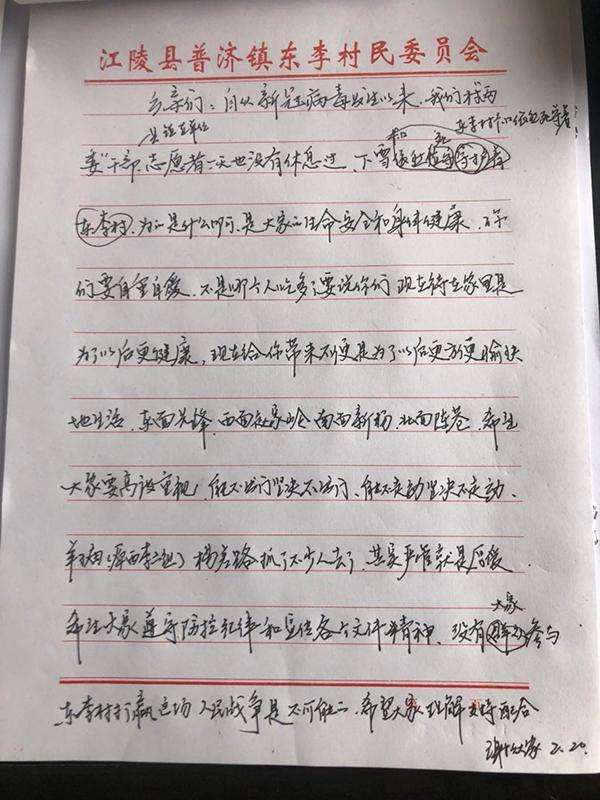 江陵县普济镇东李村民委员会
乡亲们：自从新冠病毒发生以来，我们村两
委干部、志愿者一天也没有休息过，下雪依然
东李村，为的是什么 是大家的生命安全和身体健康，你
们要自重自爱，不是哪个人吃多了要说你们，现在待在家里是
为了以后更健康，现在给你带来不便是为了以后更方便更愉快
地生活，东面先锋，西面 南面新杨，北面陈巷，希望
大家要高度重视，能不出门坚决不出门，能不走动坚决不走动，
杨名路抓了不少人去了，其实严管就是厚爱，
希望大家遵守防控纪律和单位各个文件精神，没有大家参与
东李村打赢这场人民战争是不可能的，希望大家理解支持配合
2.20